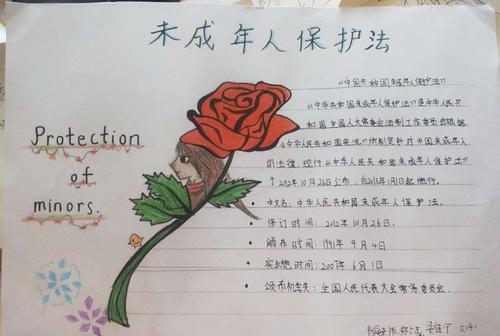 未成年人保护法
Protection
of
minors.
《中国共和国未成年人保护法》
《中华共和国未成年人保护法》是中华人民共
和国全国人大常委会法制工作委员会根据
《中华人民共和国宪法》所制定针对中国未成年人
的法律,现行《中华人民共和国未成年人保护法》
于2012年10月26日公布,自2013年1月1日起施行。
中文名:中华人民共和国未成年人保护法。
修订时间:2012年10月26日.
颁布时间:1991年9月4日.
实施时间:2007年6月1日
颁布机关:全国人民代表大会常务委员会.